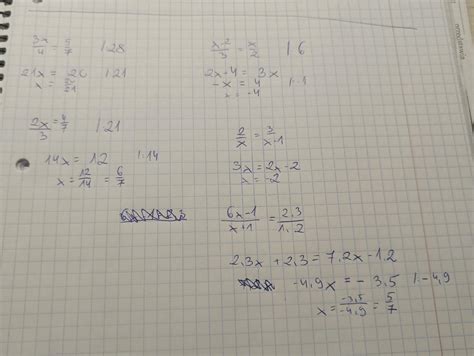 3x/4 = 5/7 |·28
21x = 20 |:21
x = 20/21
x-2/3 = x/2 |·6
2x-4 = 3x
-x = 4 |:-1
x = -4
2x/3 = 4/7 |·21
14x = 12 |:14
x = 12/14 = 6/7
2/x = 3/x-1
3x = 2x-2
x = -2
6x-1/x+1 = 2,3/1,2
2,3x + 2,3 = 7,2x - 1,2
-4,9x = -3,5 |:-4,9
x = -3,5/-4,9 = 5/7